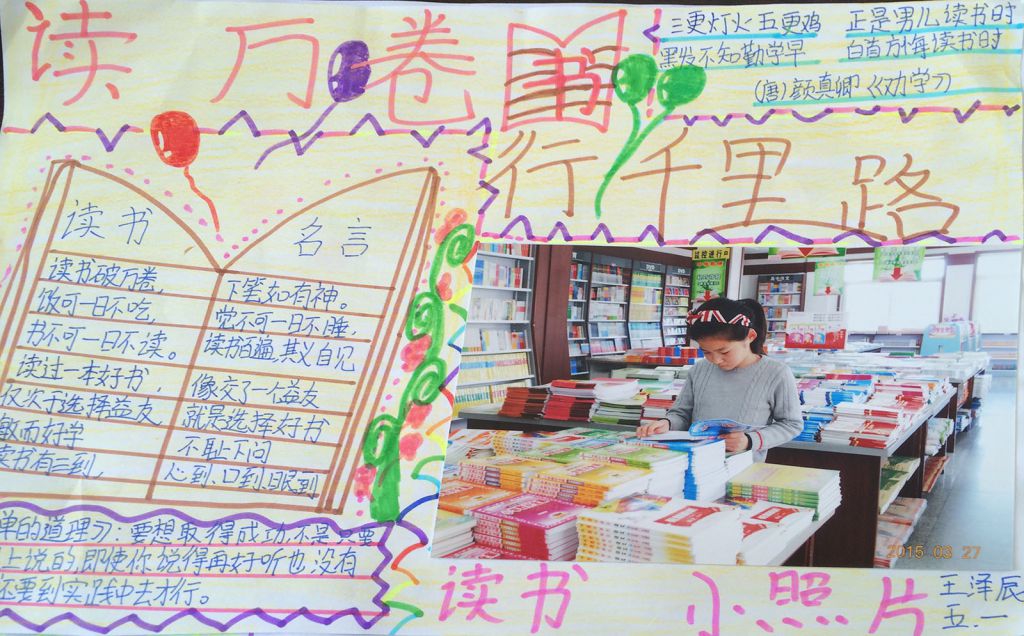 读万卷书
三更灯火五更鸡 正是男儿读书时
黑发不知勤学早 白首方悔读书时
(唐)颜真卿《劝学》
行千里路
读书 名言
读书破万卷, 下笔如有神。
饭可一日不吃, 觉不可一日不睡,
书不可一日不读。 读书百遍,其义自见
读过一本好书, 像交了一个益友
仅次于选择益友 就是选择好书
敏而好学 不耻下问
读书有三到, 心到、口到、眼到
单的道理》:要想取得成功,不是只要
上说的,即使你说得再好听也没有
还要到实践中去才行。
读书 小照片
王泽辰
五.一
2015 03 27